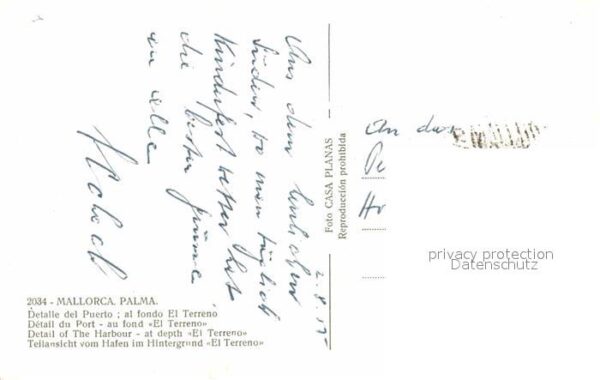 Aus dem herrlichen
Süden, wo man täglich
Kinderfest Wetter hat
die besten Grüsse
an alle
2.8.
An das
2034 - MALLORCA. PALMA.
Detalle del Puerto ; al fondo El Terreno
Détail du Port - au fond «El Terreno»
Detail of The Harbour - at depth «El Terreno»
Teilansicht vom Hafen im Hintergrund «El Terreno»
Foto CASA PLANAS
Reproducción prohibida
privacy protection
Datenschutz